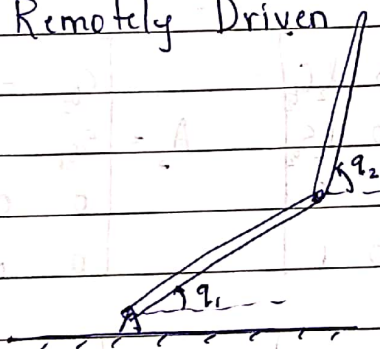 Remotely Driven
q₂
q₁